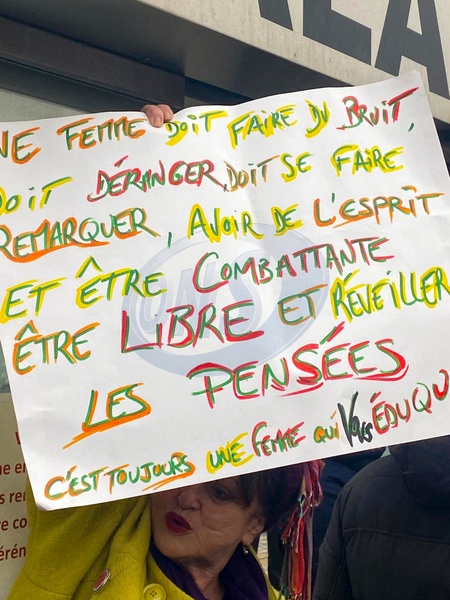 NE FEMME DOIT FAIRE DU BRUIT,
DOIT DÉRANGER, DOIT SE FAIRE
REMARQUER, AVOIR DE L'ESPRIT
ET ÊTRE COMBATTANTE
ÊTRE LIBRE ET RÉVEILLER
LES PENSÉES
C'EST TOUJOURS UNE FEMME QUI VOUS ÉDUQU